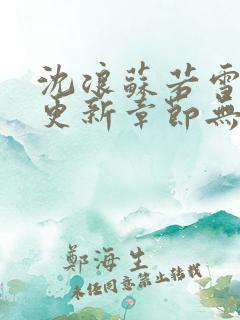 沈浪蘇若雪
更新章節無
鄭海生
未經同意禁止轉載